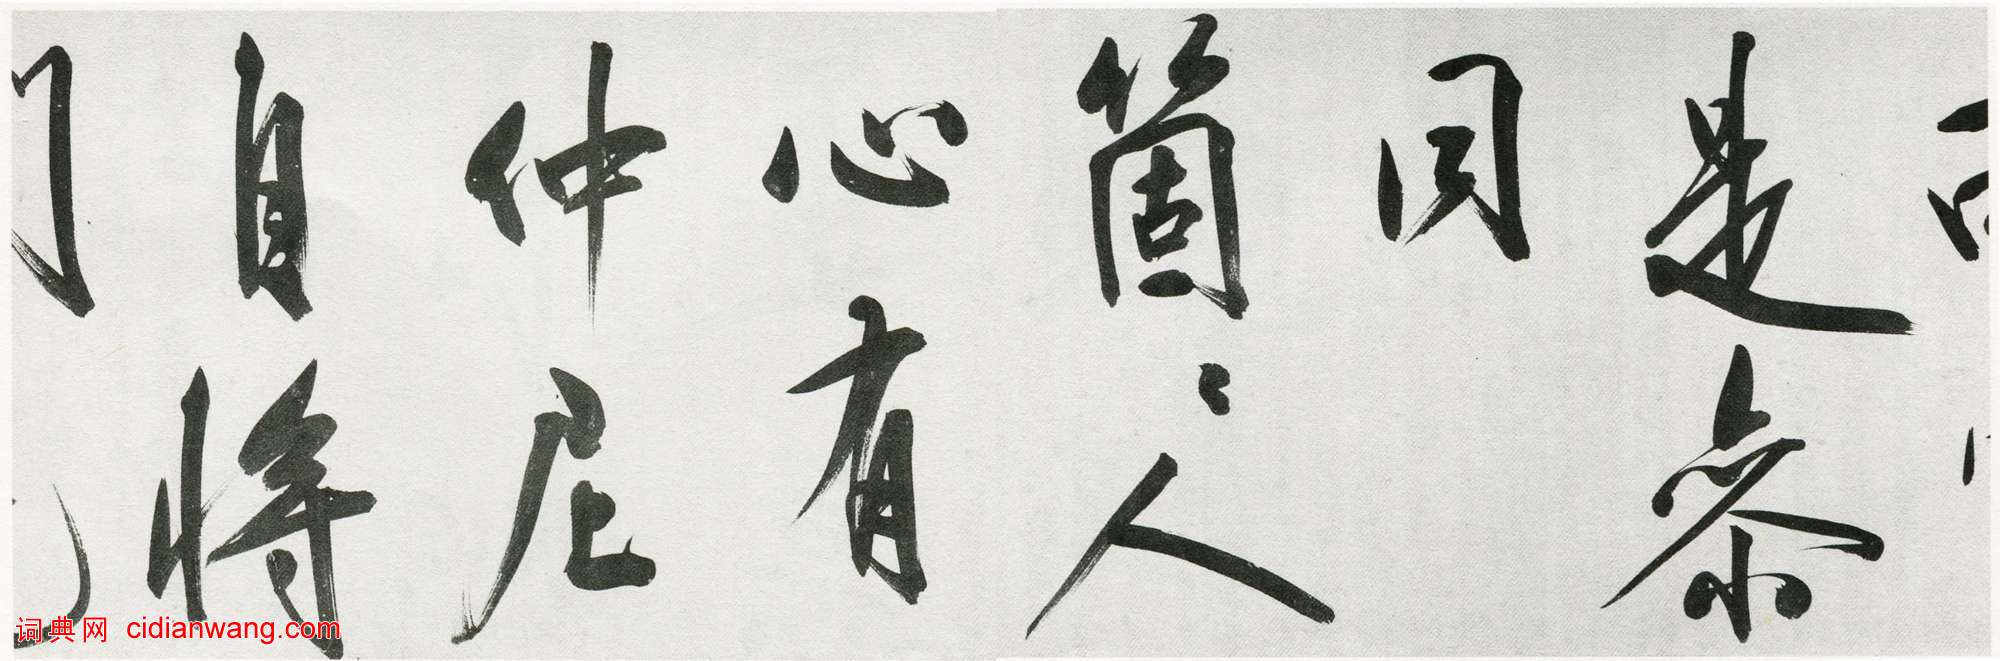 是參
同
箇々人
心有
仲尼
自將
词典网 cidianwang.com